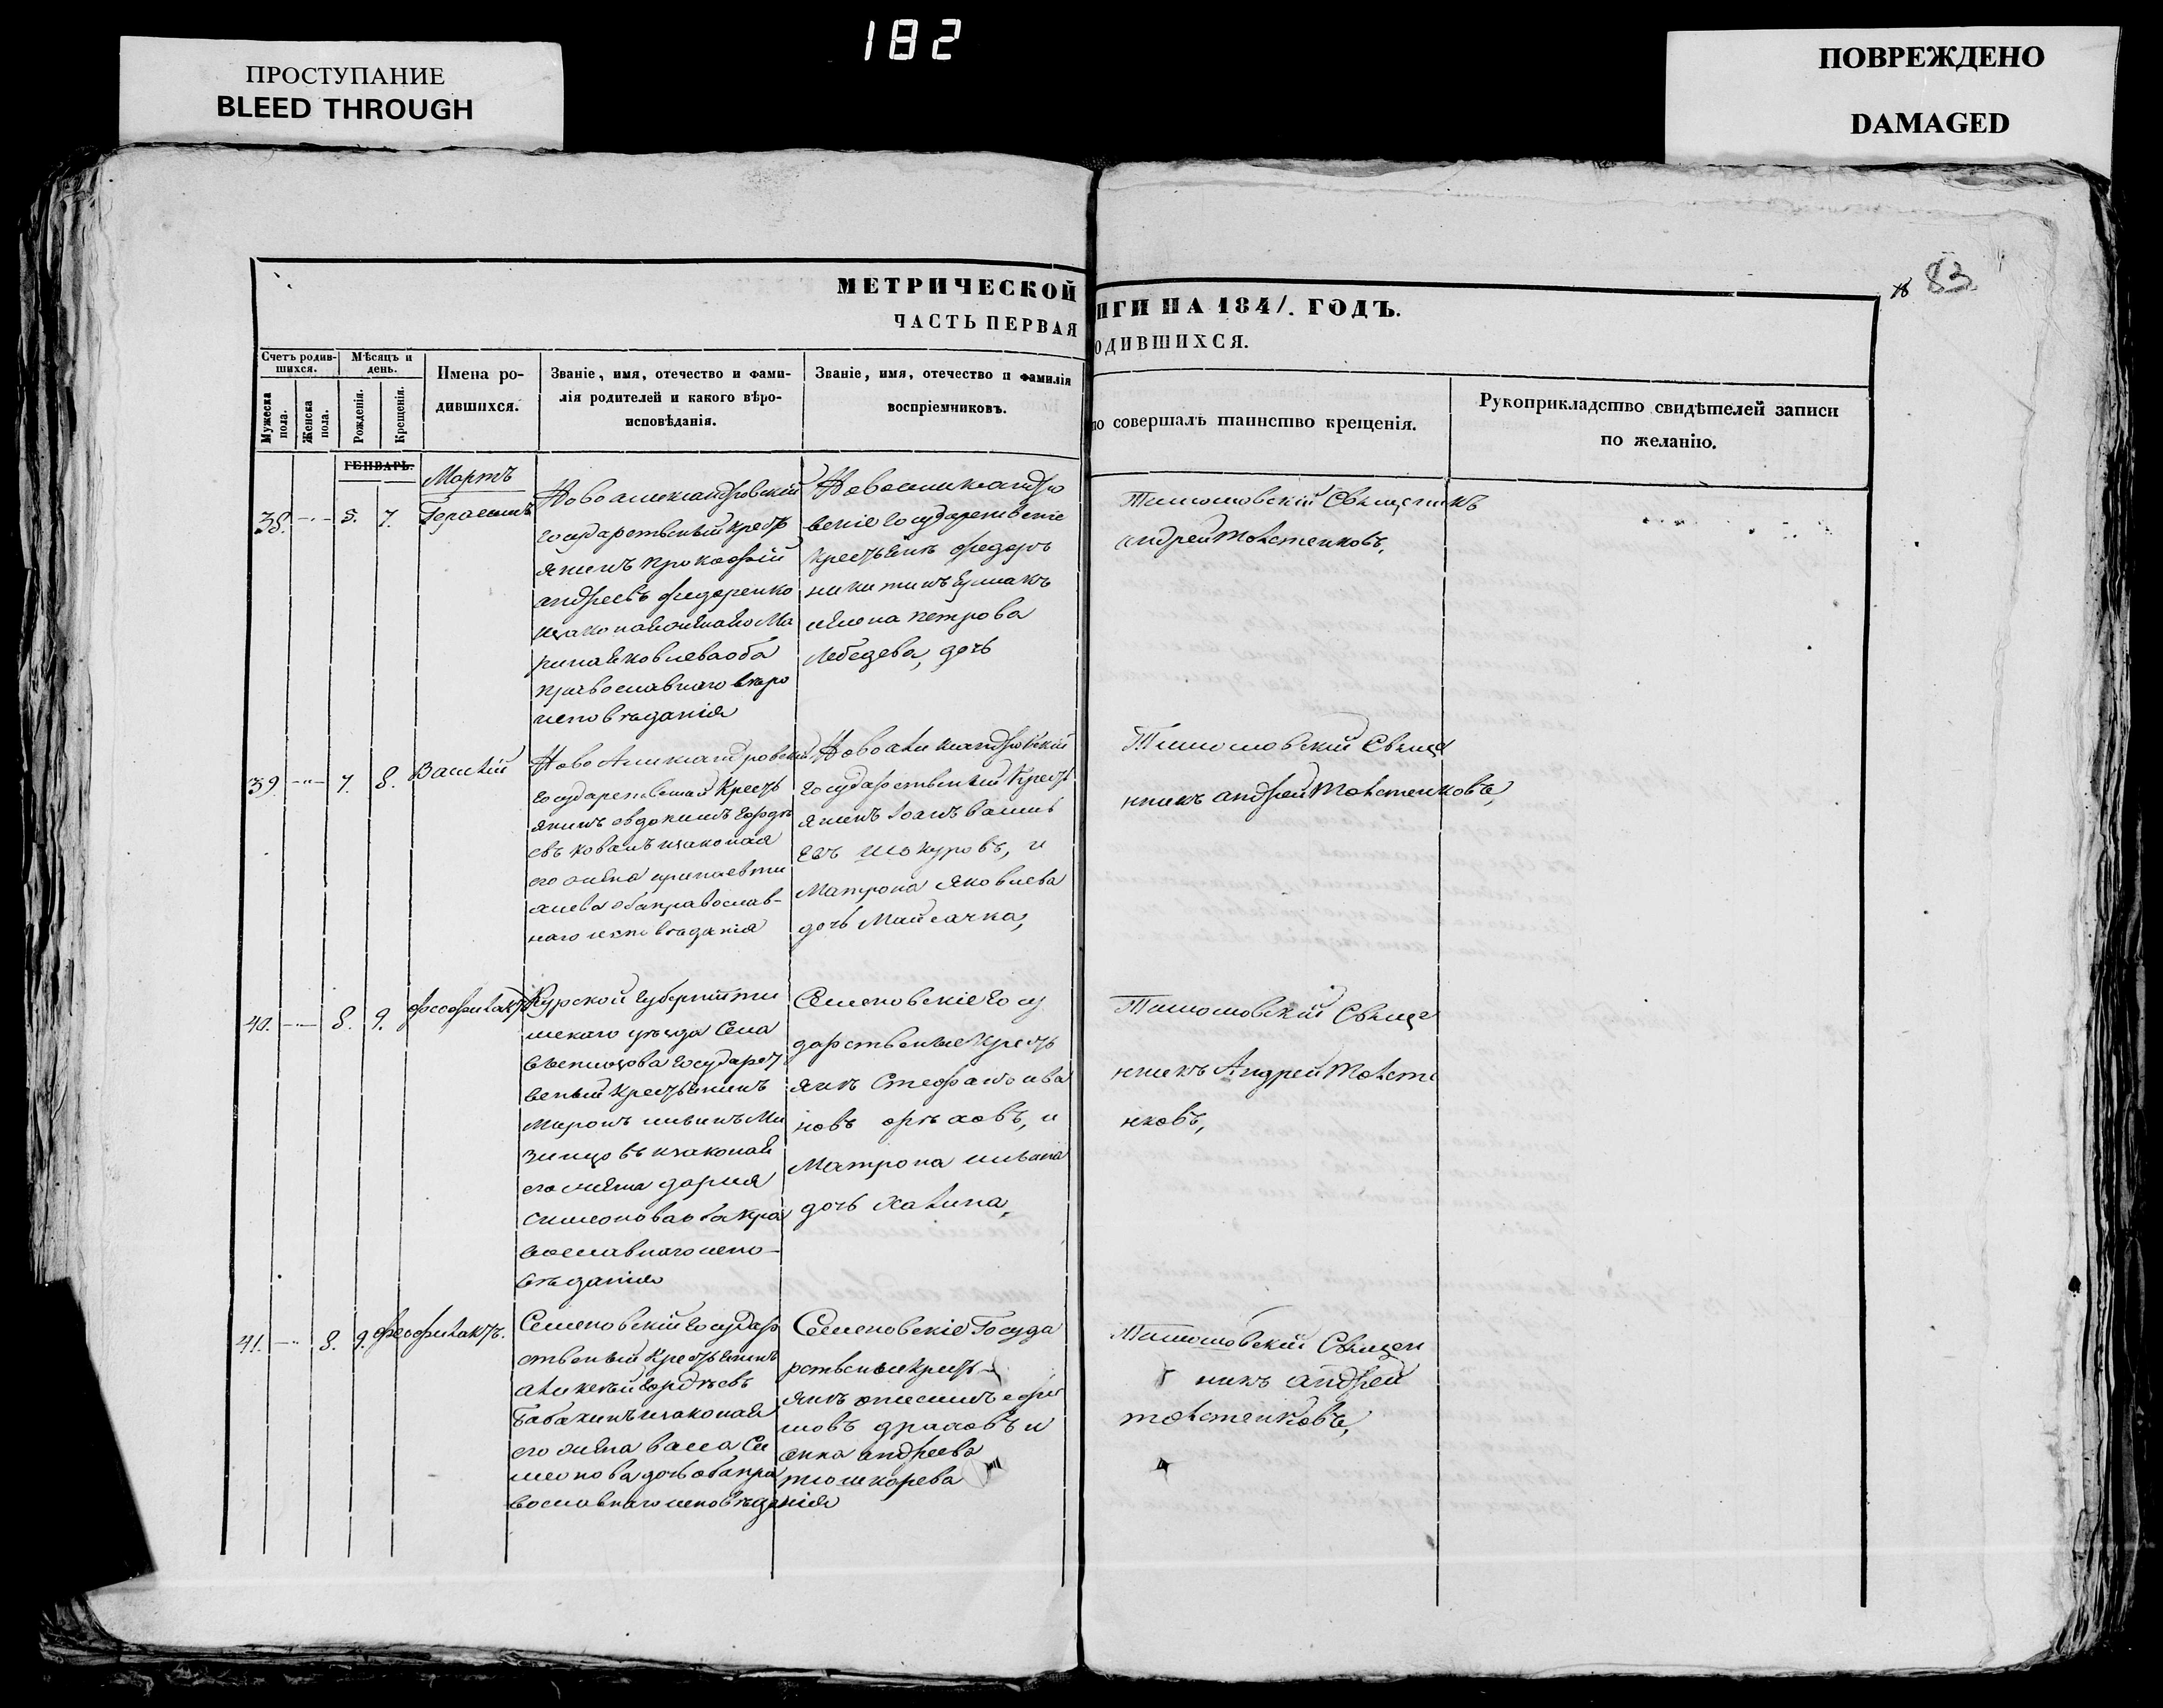 182
ПРОСТУПАНИЕ
BLEED THROUGH
ПОВРЕЖДЕНО
DAMAGED
83
МЕТРИЧЕСКОЙ
ИГИ НА 1841. ГОДЪ.
ЧАСТЬ ПЕРВАЯ
ОДИВШИХСЯ.
Счетъ родив-
шихся.
Мужеска
пола.
Женска
пола.
Мѣсяцъ и
день.
Рожденія.
Крещенія.
Имена ро-
дившихся.
Званіе, имя, отечество и фами-
лія родителей и какого вѣро-
исповѣданія.
Званіе, имя, отечество и фамилія
воспріемчиковъ.
то совершалъ таинство крещенія.
Рукоприкладство свидѣтелей записи
по желанію.
ГЕНВАРЬ.
Мартъ
38. 5. 7. Герасимъ
Новоалександровскій
государственый крестъ
янинъ прокофій
андреевъ федоренко
Ма
рина яковлева оба
православнаго вѣро
исповѣданія
Новоалександро
вскіе государственіе
крестьянъ федоръ
никитинъ
елена петрова
Лебедева, дочь
Тимошовскій Священикъ
андрей Толстенковъ,
39. 7. 8. Василій
Ново Александровскій
государственый Кресть
янинъ евдокимъ Гордѣ
евъ коваль изаконая
его жена
оба православ-
наго исповѣданія
Новоалександровскій
государственый Кресть
янинъ Іоанъ василь
евъ шокуровъ, и
Матрона Яковлева
дочь
Тимошовскій Священ
никъ андрей Толстенковъ,
40. 8. 9. феофилактъ
Курской Губерніи ти
мскаго уѣзда Села
государст
веный крестьянинъ
Миронъ Ми
зинцовъ изаконая
его жена дарія
симеонова оба пра
вославнаго испо-
вѣданія
Семеновскіе Госу
дарственые кресть
янъ Стефанъ ива
новъ орѣховъ, и
Матрона ивана
дочь Халина,
Тимошовскій Свяще
нникъ Андрей Толсте
нковъ,
41. 8. 9. феофилактъ.
Семеновскій Государ
ственый крестьянинъ
алексѣй Гордѣевъ
Бабакинъ изаконая
его жена васса Си
меонова дочь оба пра
вославнаго исповѣданія
Семеновскіе Госуда
рственые кресть-
янъ анисимъ ефре
мовъ драховъ и
анна андреева
тюшкорева
Тимошовскій Священ
никъ андрей
толстенковъ,